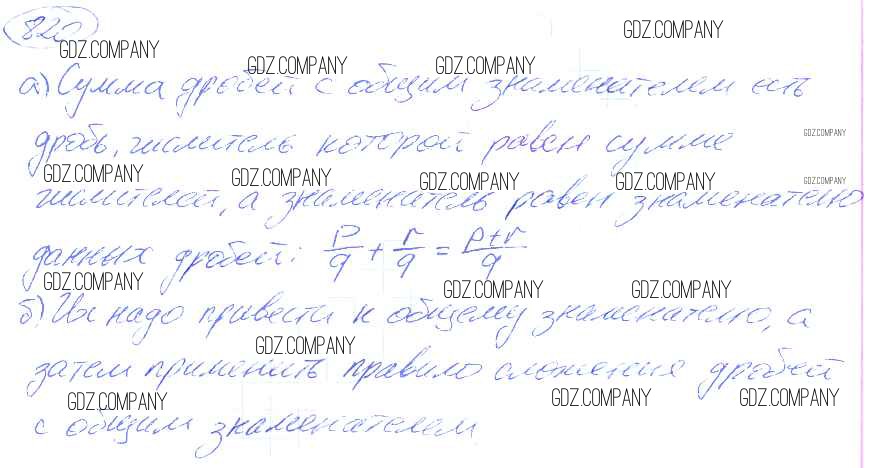 820
GDZ.COMPANY
GDZ.COMPANY
GDZ.COMPANY GDZ.COMPANY
а) Сумма дробей с общим знаменателем есть
GDZ.COMPANY
дробь, числитель которой равен сумме
GDZ.COMPANY GDZ.COMPANY GDZ.COMPANY GDZ.COMPANY GDZ.COMPANY
числителей, а знаменатель равен знаменателю
данных дробей: p/q + r/q = p+r/q
GDZ.COMPANY GDZ.COMPANY GDZ.COMPANY
б) Их надо привести к общему знаменателю, а
GDZ.COMPANY
затем применить правило сложения дробей
GDZ.COMPANY GDZ.COMPANY GDZ.COMPANY
с общим знаменателем